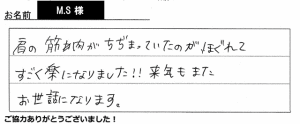 お名前 M.S 様
肩の筋肉がちぢまっていたのがほぐれて
すごく楽になりました!! 来気もまた
お世話になります。
ご協力ありがとうございました!